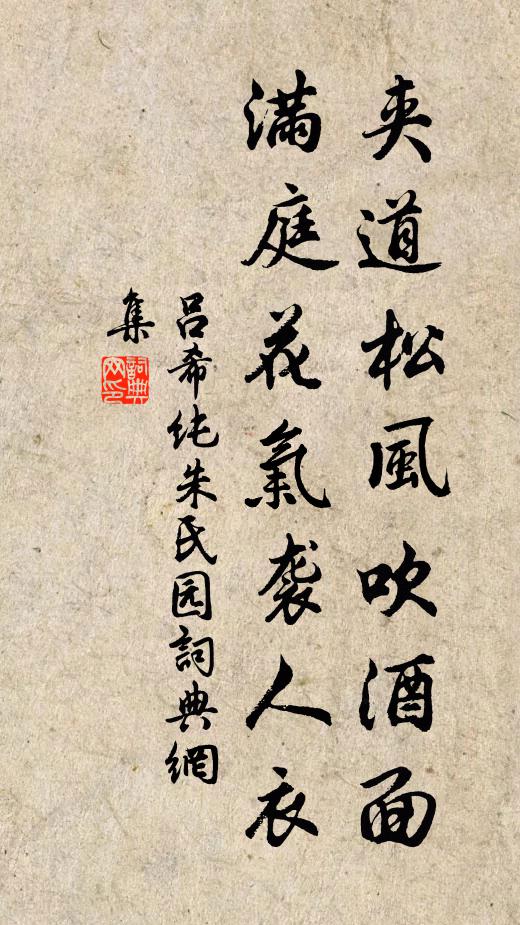 夹道松風吹酒面
滿庭花氣袭人衣
吕希纯朱氏园詞典網
集
詞典網印